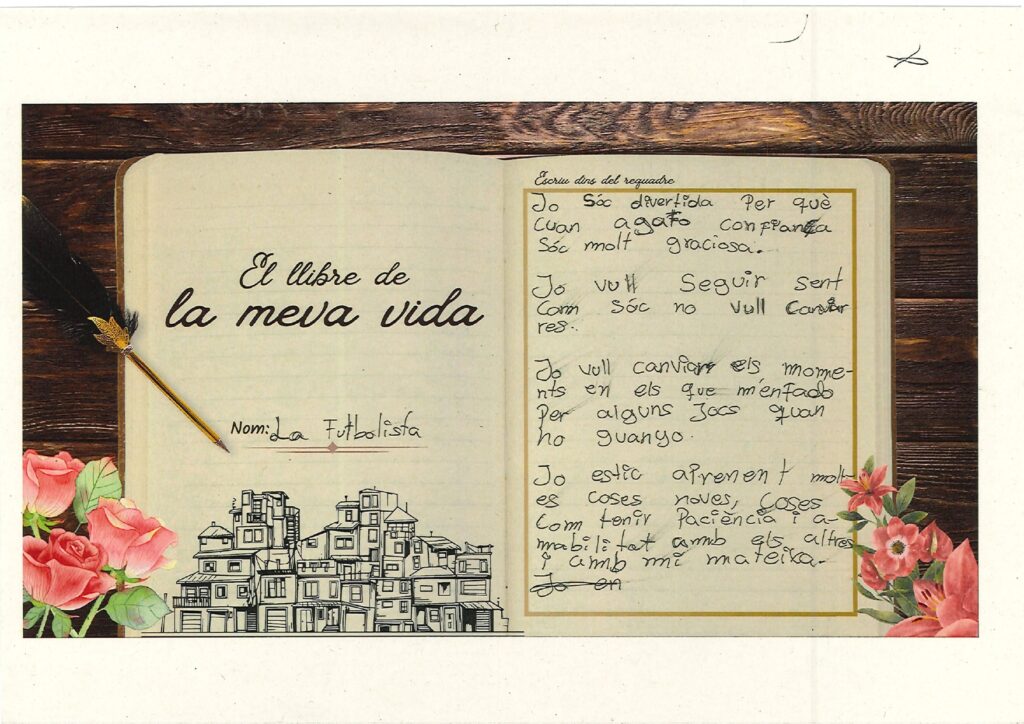 El llibre de
la meva vida
Nom: La Futbolista
Escriu dins del requadre
Jo sóc divertida Per què
cuan agafo confiança
sóc molt graciosa.
Jo vull seguir sent
com sóc no vull canviar
res.
Jo vull canviar els mome-
nts en els que m'enfado
Per alguns Jocs quan
no guanyo.
Jo estic aprenent molt-
es coses noves, coses
com tenir Paciència i a-
mabilitat amb els altres
i amb mi mateixa.
Jo en